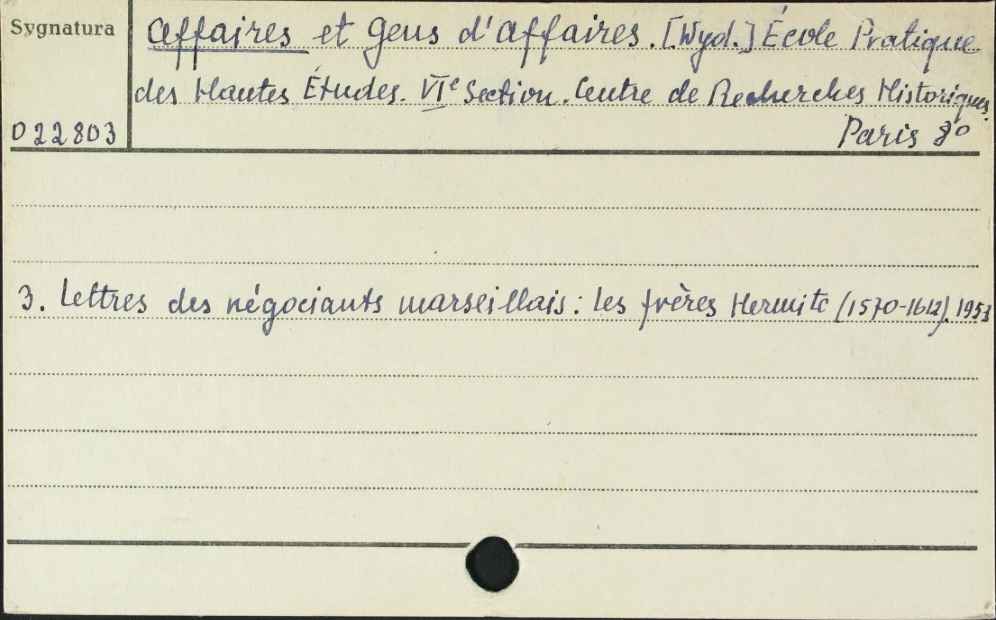 Sygnatura
Affaires et Gens d'affaires. [Wyd.] École Pratique
des Hautes Études. VIe Section. Centre de Recherches Historiques.
022803
Paris 8°
3. Lettres des négociants marseillais: les frères Hermite (1570-1612). 1953